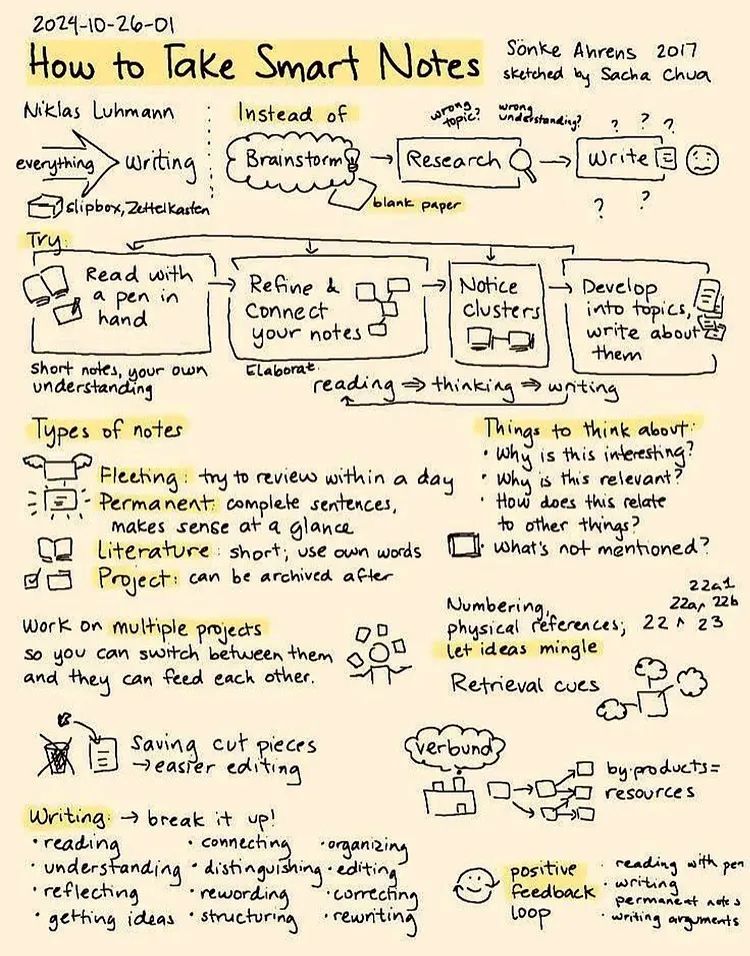 2024-10-26-01
How to Take Smart Notes
Sönke Ahrens 2017
sketched by Sacha Chua
Niklas Luhmann
everything
writing
slipbox, Zettelkasten
Instead of
Brainstorm
blank paper
wrong topic?
Research
wrong understanding?
? ? ?
Write
? ?
Try:
Read with
a pen in
hand
short notes, your own
understanding
Refine &
Connect
your notes
Elaborat.
Notice
clusters
Develop
into topics,
write about
them
reading ⇒ thinking ⇒ writing
Types of notes
Fleeting: try to review within a day
Permanent: complete sentences,
makes sense at a glance
Literature: short; use own words
Project: can be archived after
Things to think about:
• Why is this interesting?
• Why is this relevant?
• How does this relate
to other things?
• What's not mentioned?
Work on multiple projects
so you can switch between them
and they can feed each other.
Numbering,
physical references;
let ideas mingle
22a1
22a 22b
22 23
Retrieval cues
Saving cut pieces
→ easier editing
verbund
by-products =
resources
Writing: → break it up!
• reading
• understanding
• reflecting
• getting ideas
• connecting
• distinguishing
• rewording
• structuring
• organizing
• editing
• correcting
• rewriting
positive
feedback
loop
• reading with pen
• writing
permanent notes
• writing arguments